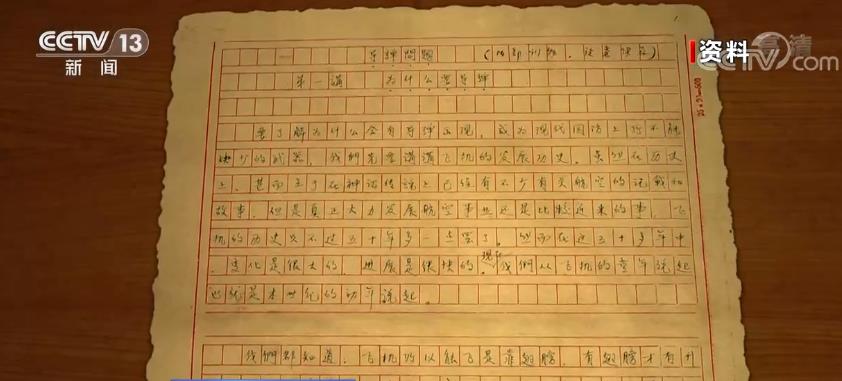 CCTV 13
新闻
资料
CCTV.com
高清
导弹问题 (内部
第一講 为什么要导弹
要了解为什么会有导弹出现,成为现代国防上所不能
缺少的武器,我們先要講講飞机的发展历史。虽然在历史
上,甚而至于在神话传说上已经有不少有关航空的记载和
故事,但是真正大力发展航空事业还是比较近来的事,飞
机的历史只不过五十年多一些罢了。然而在这五十多年中
,变化是很大的,进展是很快的。现在我們从飞机的童年说起
也就是本世纪的幼年说起。
我們都知道,飞机所以能飞是靠翅膀,有翅膀才有升